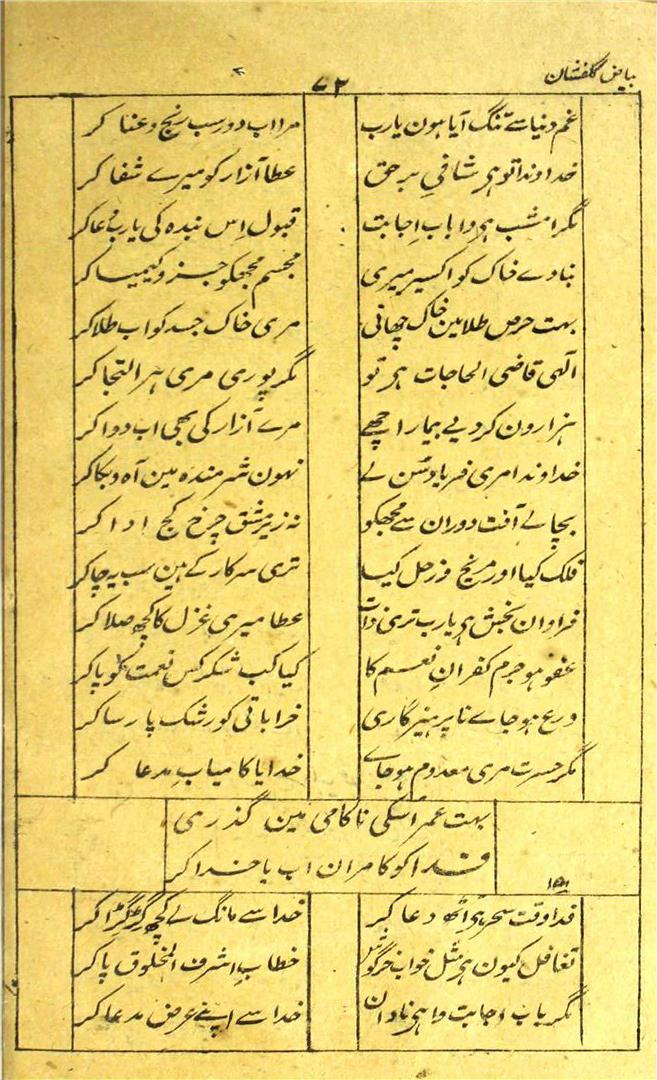 بیاض گلفشان
۷۲
غم دنیا سے تنگ آیا ہون یارب مرا اب دور سب رنج و عنا کر
خداوندا تو ہی شافیِ برحق عطا آزار کو میرے شفا کر
مگر امشب ہی وا باب اجابت قبول اِس بندہ کی یارب دعا کر
بنا دے خاک کو اکسیر میری مجسم مجھکو جز و کیمیا کر
بہت حرص طلا مین خاک چھانی مری خاک جسد کو اب طلا کر
الٰہی قاضی الحاجات ہی تو مگر پوری مری ہر التجا کر
ہزارون کر دیے بیمار اچھے مرے آزار کی بھی اب دوا کر
خداوندا مری فریاد سُن لے نہون شرمندہ مین آہ و بکا کر
بچا لے آفت دوران سے مجھکو نہ زیر مشق چرخ کج ادا کر
فلک کیا اور مریخ و زحل کیا تری سرکار کے ہین سب یہ چاکر
فراوان بخشش ہی یارب تری ذات عطا میری غزل کا کچھ صلا کر
عفو ہو جرم کفرانِ نعم کا کیا کب شکر کس نعمت کو پا کر
ورع ہو جاے نا پرہیزگاری خراباتی کو رشک پارسا کر
مگر حسرت مری معدوم ہو جاے خدایا کامیاب مدعا کر
بہت عمر اُسکی ناکامی مین گذری
فدا کو کامران اب با خدا کر
۱۵۱
فدا وقت سحر ہی اُٹھ دعا کر خدا سے مانگ لے کچھ گڑگڑا کر
تغافل کیون ہی مثل خواب خرگوش خطاب اشرف المخلوق پا کر
مگر باب اجابت وا ہی نادان خدا سے اپنے عرض مدعا کر